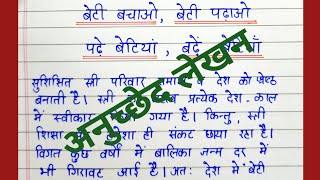 बेटी बचाओ, बेटी पढ़ाओ
पढ़े बेटियां, बढ़ें
अनुच्छेद लेखन
सुशिक्षित स्त्री परिवार देश को श्रेष्ठ
बनाती है। स्त्री प्रत्येक देश-काल
में स्वीकार गया है। किन्तु, स्त्री
शिक्षा ही संकट छाया रहा है।
विगत कुछ वर्षों में बालिका जन्म दर में
भी गिरावट आई है। अतः देश में बेटी